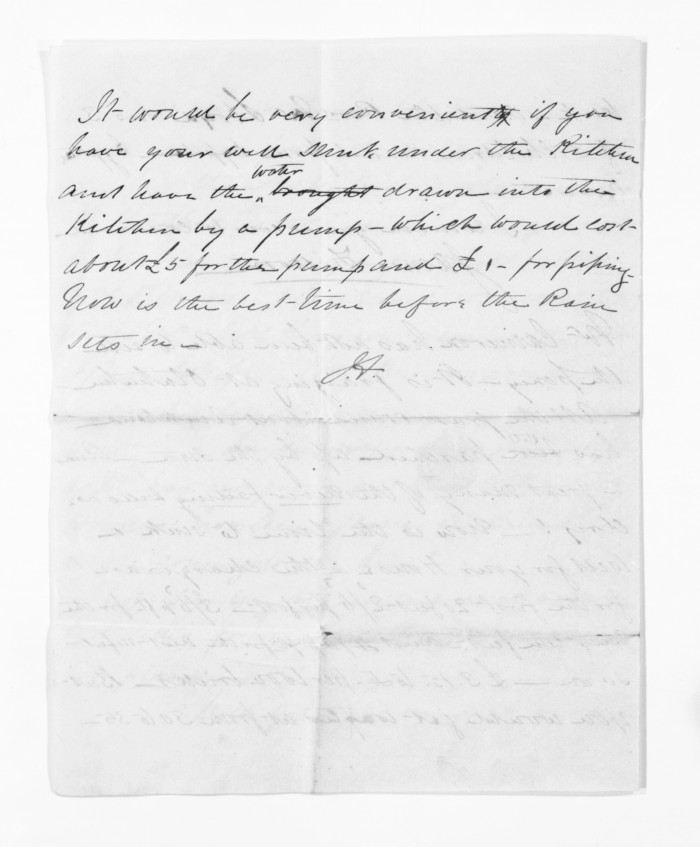 It would be very convenient if you
have your well sunk under the Kitchen
and have the water brought drawn into the
Kitchen by a pump - which would cost
about £5 for the pump and £1 - for piping
Now is the best time before the Rain
sets in -